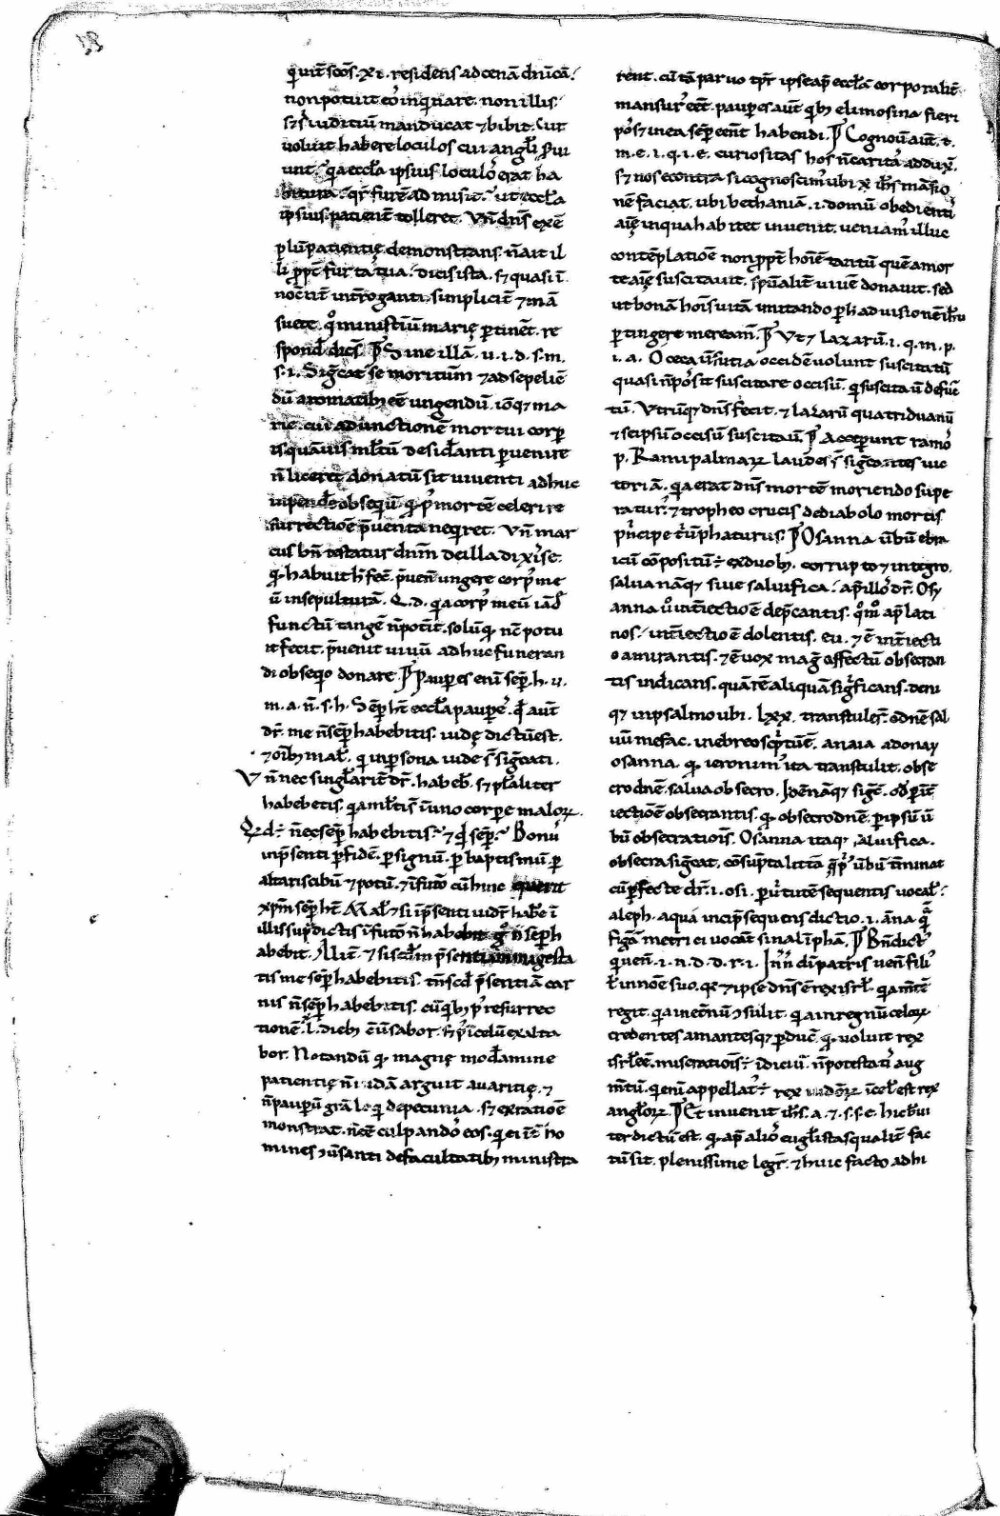 q̇ inť scōs xi. residens ad cenā dn̄icā.
non potuit eo inquinare. non illis.
sꝫ s̄ iuditiū manducat ⁊ bibit. Cur
uoluit habere loculos cui angl̄i ꝑui
unt. q̇a eccl̄a ipsius loculoꝰ erat ha
bitura. qr̄ furē admisit. ut eccl̄a
ipsius patient̄ tolleret. Vn̄ dn̄s exē
plū patientię demonstrans. n̄ ait il
li ꝓpt̄ furta tua. dicis ista. sꝫ quasi ī
nocent̄ int̄roganti. simplicit̄ ⁊ mā
suete. qͦ ministiū marię ꝑtinet. re
spond̄ dicēs. Sine illā. u. i. d. s. m.
s. i. Sig̅cat se morituꝝ ⁊ ad sepeliē
dū aromatibꝫ eē ungendū. ioq̄ꝫ ma
rie. cui ad unctionē mortui corꝑ
is quāuis ml̄tū desid̄anti ꝑuenire
n̄ liceret donatū sit uiuenti adhuc
inpend̄e obsequiū. q̇ ꝑ mortē celeri re
surrectioē p̄uenta neq̇ret. Vn̄ mar
cus bn̄ testatur dn̄m de illa dixisse.
q̇ habuit h̄ fec̄. p̄uen̄ ungere corpꝰ me
ū in sepulturā. Q. d. q̇a corpꝰ meū iā d̄
functū tangē n̄ pot̄it. solū q̇ nc̄ potu
it fecit. p̄uenit uiuū adhuc funeran
di obseqͦ donare. Pauꝑes enī sēp. h. u.
m. a. n̄. s. h. Sēp hт̄ eccl̄a pauꝑes. q̇ aut̄
dr̄. me n̄ sēp habebitis. iudę dictū est.
⁊ oīibꝫ mal̄. q̇ in ꝑsona iude s̄ sig̅cati.
Vn̄ nec singl̄ariť dr̄. habeb̄. sꝫ pl̄aliter
habebetis. q̇a ml̄tis ī uno corꝑe maloꝝ.
Q̇d ÷ n̄ec sēp habebitis. ⁊ q̇ sēp. Bonuꝰ
in p̄senti ꝑ fidē. ꝑ signū. ꝑ baptismū. ꝑ
altaris cibū ⁊ potū. ⁊ ī futͦo cū hinc
xp̄m sēp hт̄. Mal̄ ⁊ si ī p̄senti uidr̄ hab̄e ī
illis sup̄dictis ī futͦo n̄ habebit. gͦ n̄ sēp h
abebit. Aliť ⁊ si scd̄m p̄sentiam magesta
tis me sēp habebitis. tn̄ scd̄ p̄sentiā car
nis n̄ sēp habebitis. cū q̇bꝫ pꝰ resurrec
tionē. xl. diebꝫ ēūsabor. sꝫ pꝰ ī celū exalta
bor. Notandū q̇ magnę mod̄amine
patientię n̄ iudā arguit auaritię. ⁊
n̄ pauꝑū grā loq̇ de pecunia. sꝫ ex ratioē
monstrat. n̄ eē culpandoꝰ eos. q̇ ei inť ho
mines ɔūsanti de facultatibꝫ ministra
rent. cū tā paruo tp̄r ipse ap̄ eccl̄ā corporaliť
mansurꝰ eēt. pauꝑes aut̄ q̇bꝫ elimosina fieri
pos ⁊ in ea sēp eēnt habendi. Cognou aut̄. t.
m. e. i. q. i. e. curiositas hos n̄ caritas adduxͭ.
sꝫ nos econtra si cognoscimꝰ ubi x ih̄s māsio
nē faciat. ubi bethaniā .i. domū obedienti
aīę in qua habitet inuenit. ueniamꝰ illuc
contēplatioē non ꝓpt̄ hoīē tantū quē amor
te aīę suscitauit. sp̄ualiť uiuē donauit. sed
ut bonā hoīs uitā imitando ꝑh ad uisionē ih̄u
ꝑtingere mereamꝰ. Vt ⁊ lazarū. i. q. m. p.
i. a. O ceca ūsutia occidē uolunt suscitatū
quasi n̄ posit suscitare occisū. q̇ suscita ū defūc
tū. Vtrūqꝫ dn̄s fecit. ⁊ lazarū quatriduanū
⁊ seipsū occisū suscitaū. Acceꝑunt ramoꝰ
p. Rami palmaꝝ laudes s̄ sig̅cantes uic
toriā. q̇a erat dn̄s mortē moriendo supe
raturꝰ. ⁊ tropheo crucis de diabolo mortis
p̄ncipe t̄ūphaturus. Osanna ūbū ebra
icū cōpositū ÷ ex duobꝫ. corrupto ⁊ integro.
salua namqꝫ siue saluifica. ap̄ illoꝰ dr̄. Osy
anna uͦ int̄iectio ē dep̄cantis. qͦmͦ ap̄ lati
nos. int̄iectio ē dolentis. eu. ⁊ ē int̄iecti
o amirantis. ⁊ ē uox mag̅ affectū obsecran
tis indicans. quā rē aliquā sig̅ficans. deni
qꝫ in psalmo ubi. lxx. transtulerꝰ. o dn̄e sal
uū me fac. in ebreo sc̄ptū ē. anaia adonay
osanna. q̇ ieronimꝰ ita transtulit. obse
cro dn̄e. salua obsecro. Idē nāqꝫ sig̅t. o ꝑ int̄
iectiōe obsecrantis. q̇ obsecro dn̄e. ꝑ ipsū ū
bū obsecratiois. Osanna itaqꝫ saluifica.
obsecra sig̅cat. cōsūpta litt̄a q̇ pͥ ūbū t̄minat
cū ꝑfecte dr̄. i. osi. ꝑ uirtutē sequentis uocal̄.
aleph. a qua incip̄ sequens dictio. i. āna
figā metri ei uocāt sinalīphā. Bn̄dict
qui uen̄. i. n. d. d. r. i. In n̄ dī patris uen̄ filiꝰ
ł in noīe suo. qr̄ ⁊ ipse dn̄s ē rex isrł. q̇a ... 
regit. q̇a in etnū ɔsulit. q̇a in regnū celoꝝ
credentes amantesqꝫ ꝑducͭ. q̇ uoluit rex
isrł eē. miseratiois ÷ idiciū. n̄ potestatis aug
mtū. q̇ enī appellatꝰ ÷ rex iudoꝝ ī celꝰ est rex
angl̄oꝝ. Et inuenit ih̄s. a. ⁊. s. s. e. hic breui
ter dictū est. q̇ ap̄ alioꝰ eugl̄istas qualiť fac
tū sit. plenissime legrͭ. ⁊ huic facto adhi